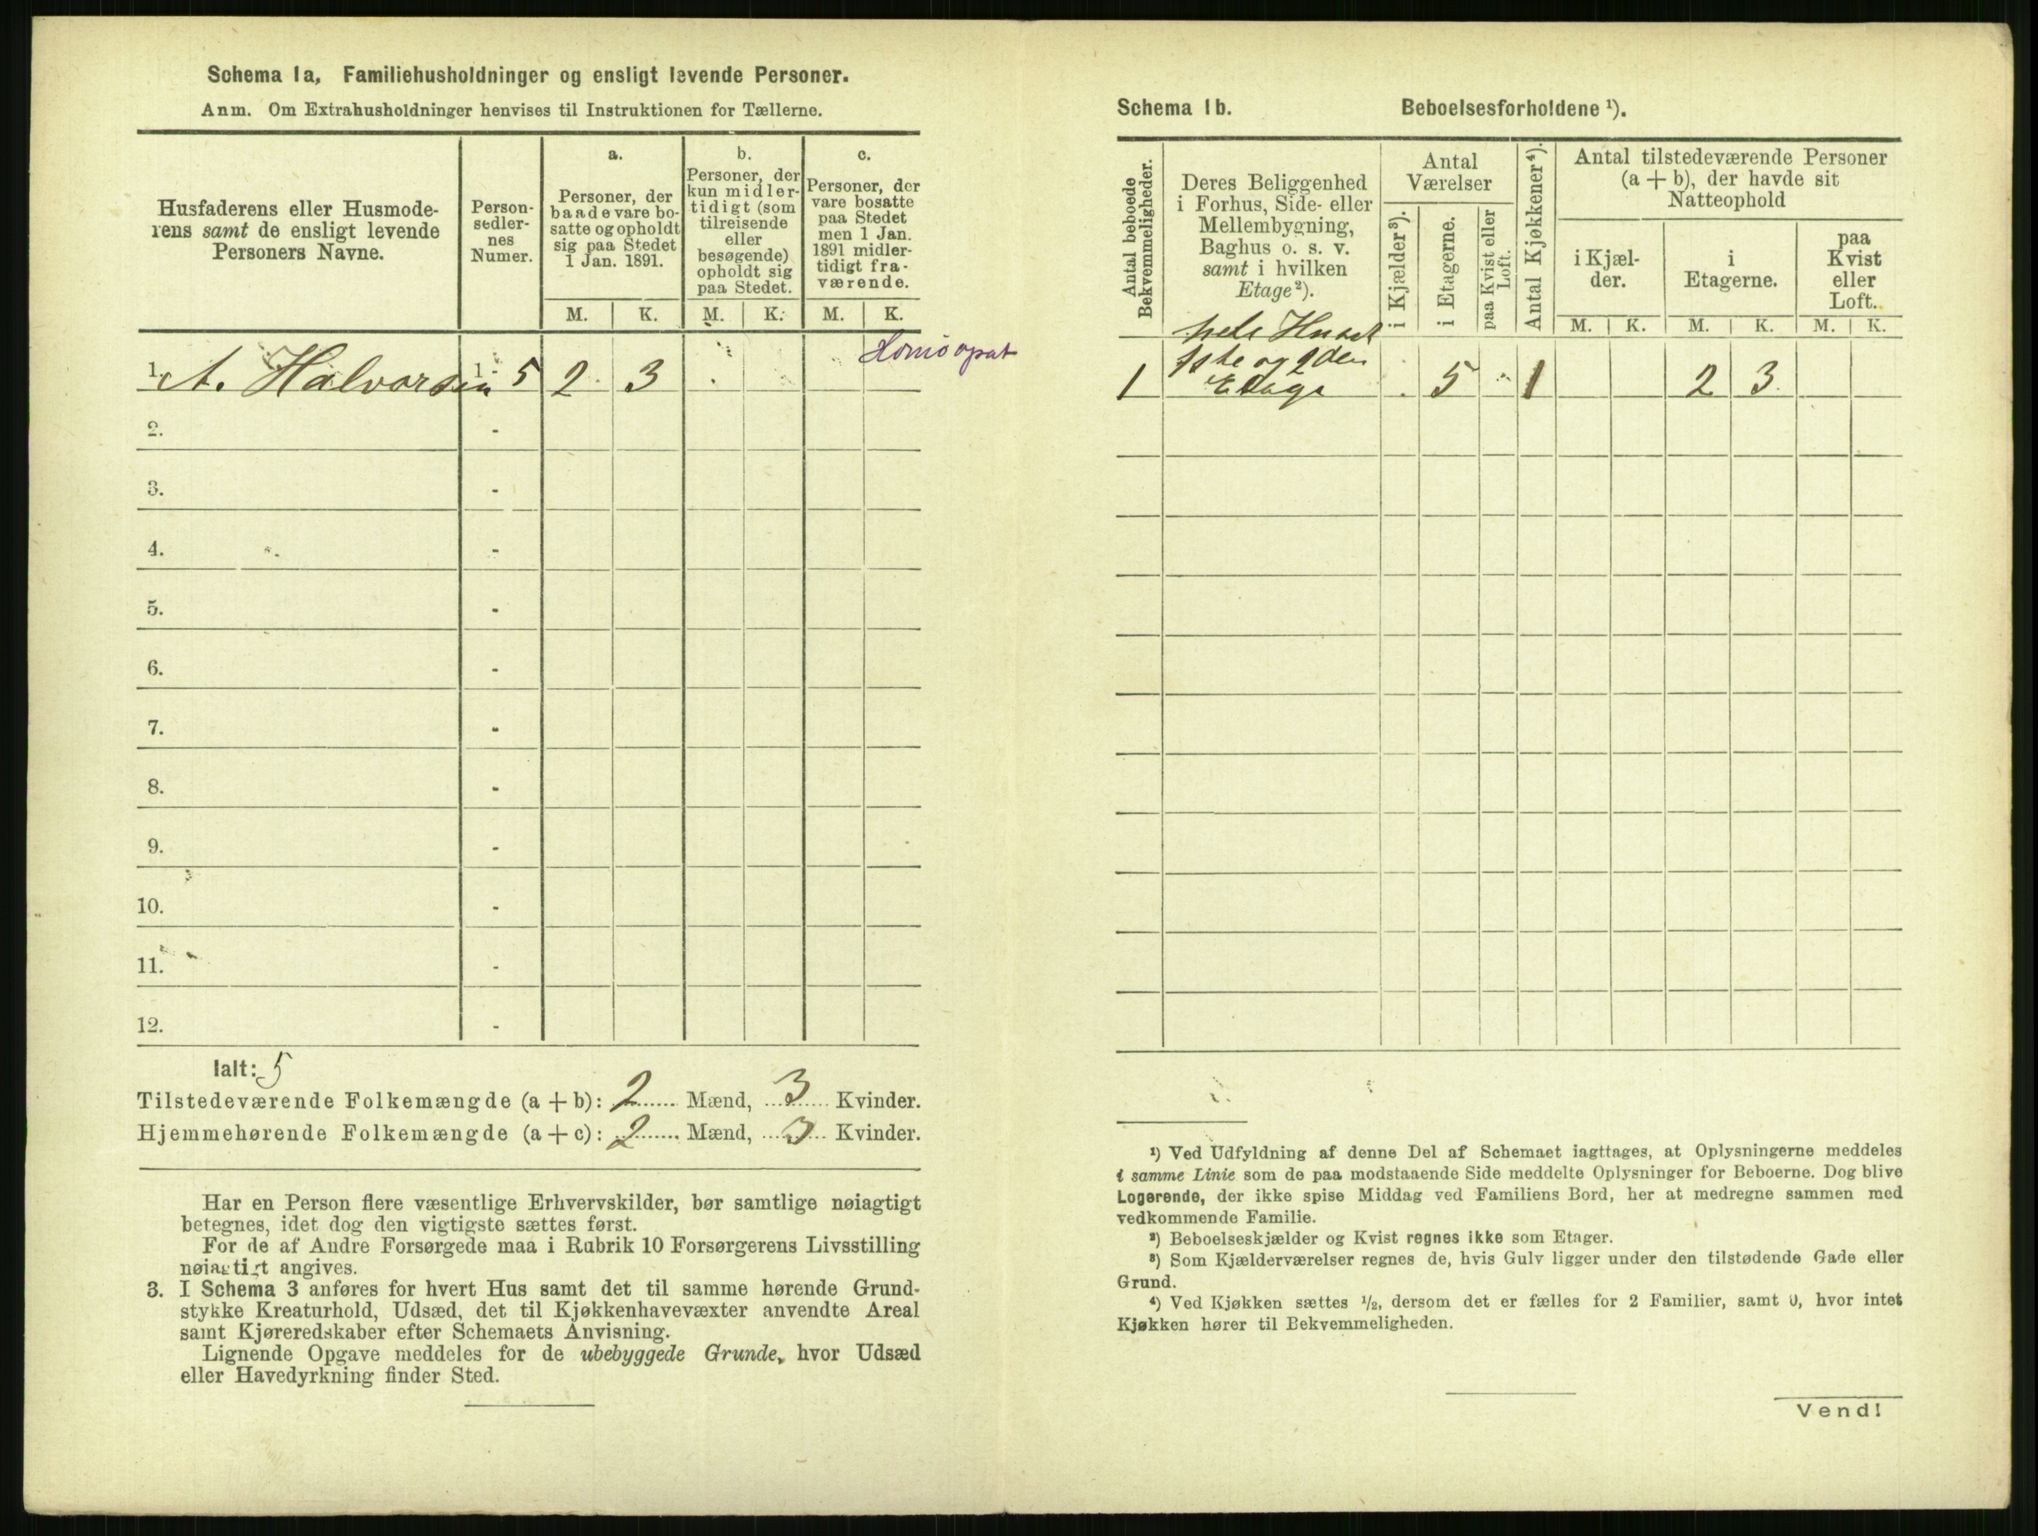 Schema 1a, Familiehusholdninger og ensligt levende Personer.
Anm. Om Extrahusholdninger henvises til Instruktionen for Tællerne.
Husfaderens eller Husmode-
rens samt de ensligt levende
Personers Navne.
Person-
sedler-
nes
Numer.
a.
Personer, der
baade vare bo-
satte og opholdt
sig paa Stedet
1 Jan. 1891.
b.
Personer, der
kun midler-
tidigt (som
tilreisende
eller
besøgende)
opholdt sig
paa Stedet.
c.
Personer, der
vare bosatte
paa Stedet
men 1 Jan.
1891 midler-
tidigt fra-
værende.
M. K. M. K. M. K.
Homöopat
1. A. Halvorsen 1 - 5 2 3
2. -
3. -
4. -
5. -
6. -
7. -
8. -
9. -
10. -
11. -
12. -
Ialt: 5
Tilstedeværende Folkemængde (a + b): 2 Mænd, 3 Kvinder.
Hjemmehørende Folkemængde (a + c): 2 Mænd, 3 Kvinder.
Har en Person flere væsentlige Erhvervskilder, bør samtlige nøiagtigt
betegnes, idet dog den vigtigste sættes først.
For de af Andre Forsørgede maa i Rubrik 10 Forsørgerens Livsstilling
nøiagtigt angives.
3. I Schema 3 anføres for hvert Hus samt det til samme hørende Grund-
stykke Kreaturhold, Udsæd, det til Kjøkkenhavevæxter anvendte Areal
samt Kjøreredskaber efter Schemaets Anvisning.
Lignende Opgave meddeles for de ubebyggede Grunde, hvor Udsæd
eller Havedyrkning finder Sted.
Schema 1b. Beboelsesforholdene ¹).
Antal beboede
Bekvemmeligheder.
Deres Beliggenhed
i Forhus, Side- eller
Mellembygning,
Baghus o. s. v.
samt i hvilken
Etage²).
Antal
Værelser
i Kjælder³).
i Etagerne.
paa Kvist eller
Loft.
Antal Kjøkkener⁴).
Antal tilstedeværende Personer
(a + b), der havde sit
Natteophold
i Kjæl-
der.
i
Etagerne.
paa
Kvist
eller
Loft.
M. K. M. K. M. K.
hele Huset
1ste og 2den
1 Etage . 5 1 2 3
¹) Ved Udfyldning af denne Del af Schemaet iagttages, at Oplysningerne meddeles
i samme Linie som de paa modstaaende Side meddelte Oplysninger for Beboerne. Dog blive
Logerende, der ikke spise Middag ved Familiens Bord, her at medregne sammen med
vedkommende Familie.
²) Beboelseskjælder og Kvist regnes ikke som Etager.
³) Som Kjælderværelser regnes de, hvis Gulv ligger under den tilstødende Gade eller
Grund.
⁴) Ved Kjøkken sættes ½, dersom det er fælles for 2 Familier, samt 0, hvor intet
Kjøkken hører til Bekvemmeligheden.
Vend!